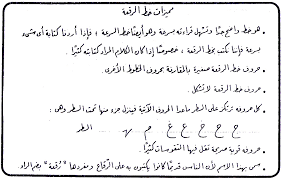 مميزات خط الرقعة
• هو خط واضح جدًا وتسهل قراءته بسرعة وهو أيضًا خط السرعة ؛ فإذا أردنا كتابة أي شيء
بسرعة فإننا نكتب بخط الرقعة ؛ خصوصًا إذا كان الكلام المراد كتابته كثيرًا .
• حروف خط الرقعة صغيرة بالمقارنة بحروف الخطوط الأخرى .
• حروف خط الرقعة لا تشكل .
• كل حروفه ترتكز على السطر ما عدا الحروف الآتية فينزل جزء منها تحت السطر وهى :
ج ح خ ع غ م ـهـ السطر
• حروف قوية سريعة تقل فيها التقوسات كثيرًا .
• سمى بهذا الاسم لأن الناس قديمًا كانوا يكتبون به على الرقاع ومفردها "رقعة" بضم الراء .